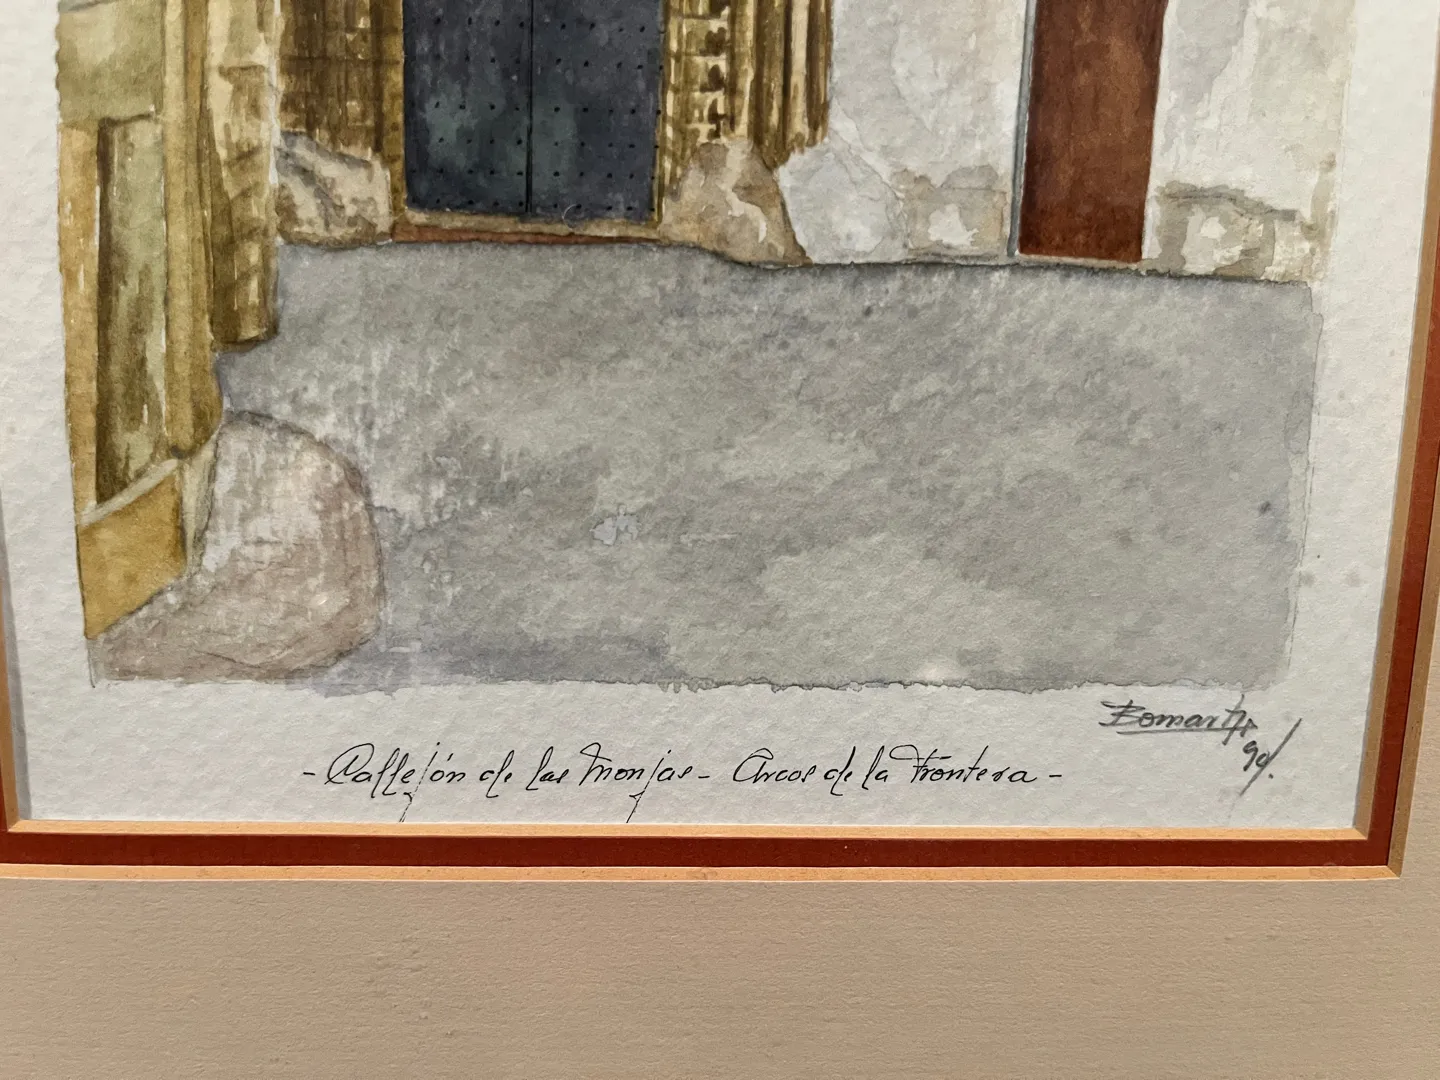 Bomarti
90/.
- Callejón de las Monjas - Arcos de la Frontera -